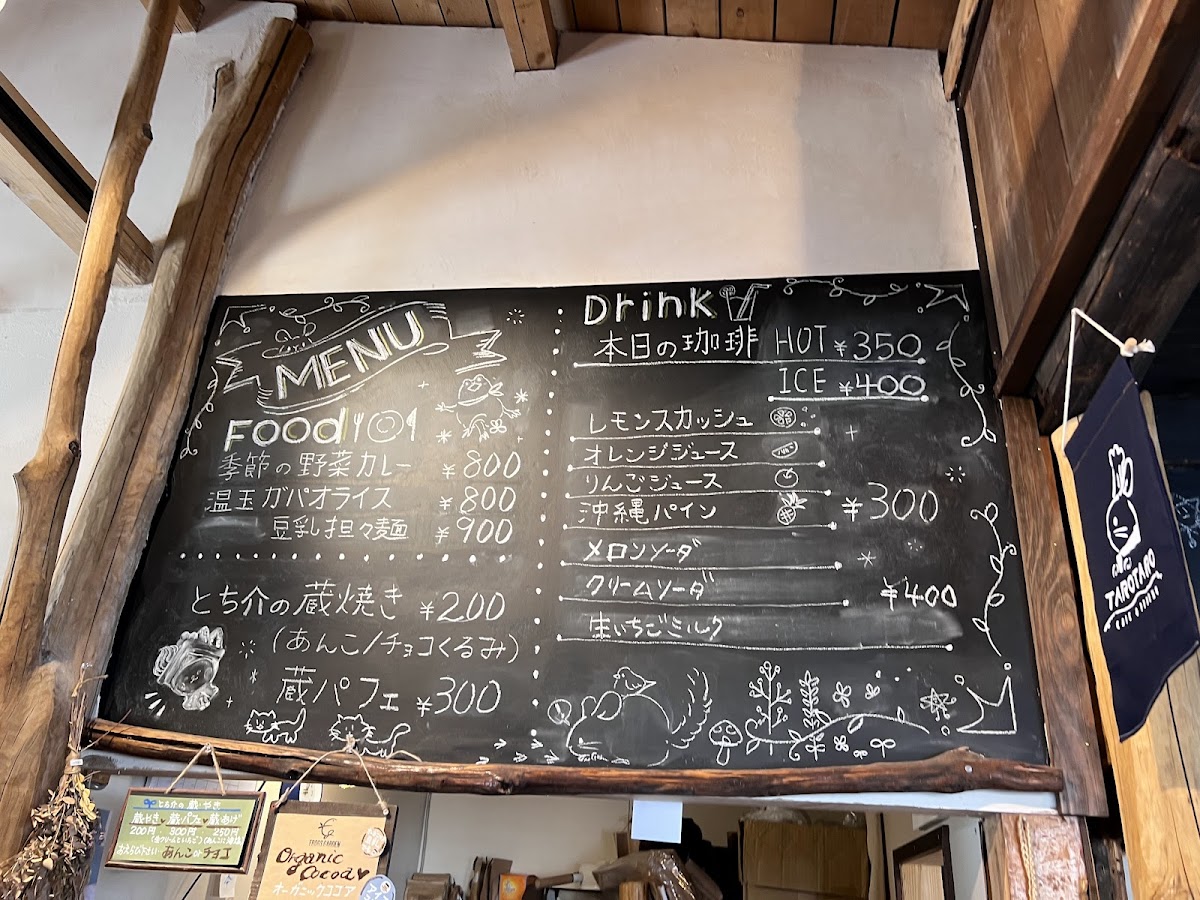 MENU
Food
季節の野菜カレー ¥800
温玉ガパオライス ¥800
豆乳担々麺 ¥900
とち介の蔵焼き ¥200
(あんこ/チョコくるみ)
蔵パフェ ¥300
Drink
本日の珈琲 HOT ¥350
ICE ¥400
レモンスカッシュ
オレンジジュース
りんごジュース
沖縄パイン
¥300
メロンソーダ
クリームソーダ
¥400
生いちごミルク
TAROTARO
とち介の蔵やき
蔵やき 蔵パフェ 蔵あげ
200円 300円 250円
おえらび下さい あんこorチョコ
Organic
Cocoa
オーガニックココア